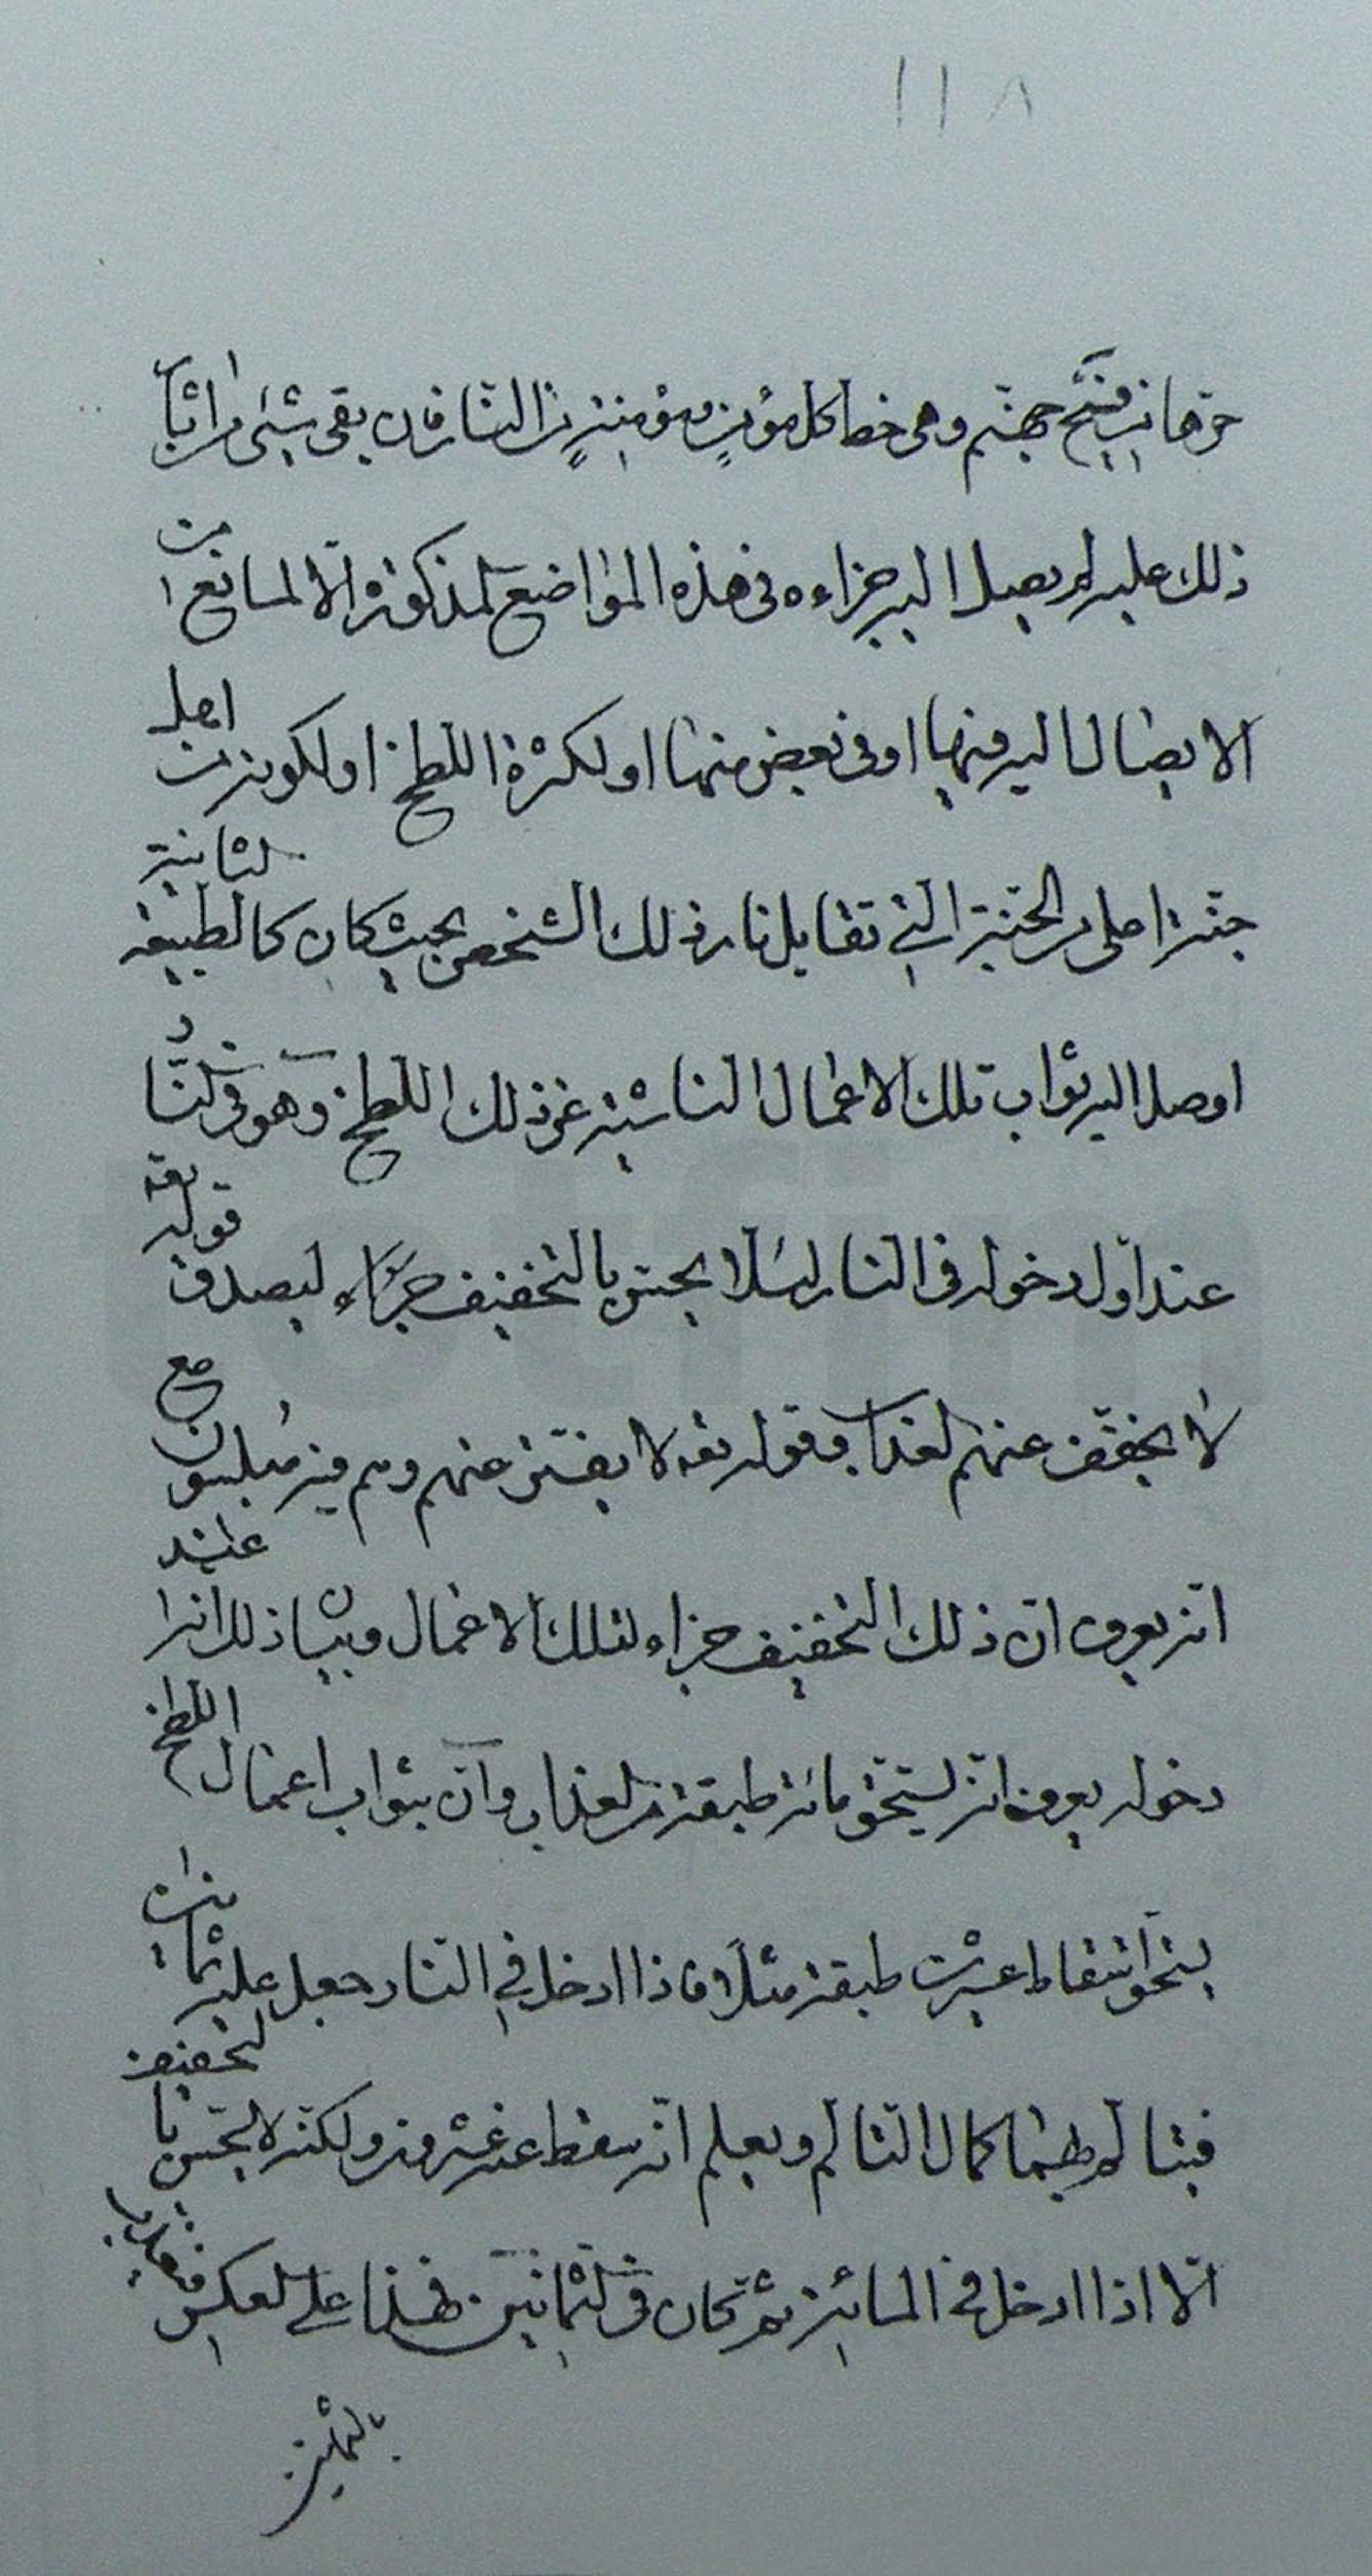 ١١٨
حرّها من فيح جهنّم وهي حظ كل مؤمنٍ ومؤمنةٍ من النار فان بقى شئ من اثبات
ذلك عليه لم يصل اليه جزاءه فى هذه المواضع المذكورة الّا لمانع من
الايصال اليه فيها او فى بعض منها او لكثرة اللطخ او لكونه من اهل
جنّة اعلى من الجنّة التي تقابل نار ذلك الشخص بحيث كان كالطبيعة الثانية
اوصل اليه ثواب تلك الاعمال الناشئة عن ذلك اللطخ وهو فى النّار
عند اوّل دخوله فى النار لئلّا يحس بالتخفيف جزاء ليصدق قوله تعه
لا يخفّف عنهم العذاب وقوله تعه لا يفتّر عنهم وهم فيه مبلسون مع
انه يعرف انّ ذلك التخفيف جزاء لتلك الاعمال وبيان ذلك انه عند
دخوله يعرف انه يستحق مائة طبقة من العذاب وانّ بثواب اعمال اللطخ
يستحق اسقاط عشرين طبقة مثلًا فاذا ادخل في النار جعل عليه ثمانين
فيتالم بها كمال التالم ويعلم انّه سقط عنه عشرون ولكنه لا يحس بالتخفيف
الّا اذا ادخل فى المائة ثم كان فى الثمانين فهذا على العكس فتعذيبه
بالثمانين